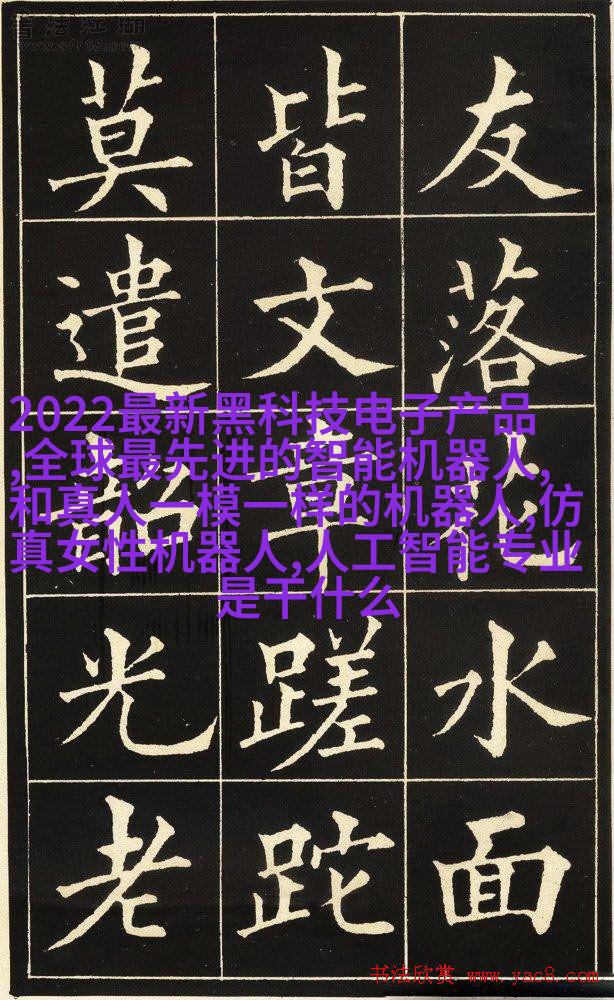 书法江湖
www.sf108.com
友落花水面
皆文章蹉跎
莫遣韶光老
2022最新黑科技电子产品
,全球最先进的智能机器人,
和真人一模一样的机器人,仿
真女性机器人,人工智能专业
是干什么
书法欣赏 www.yac8.com